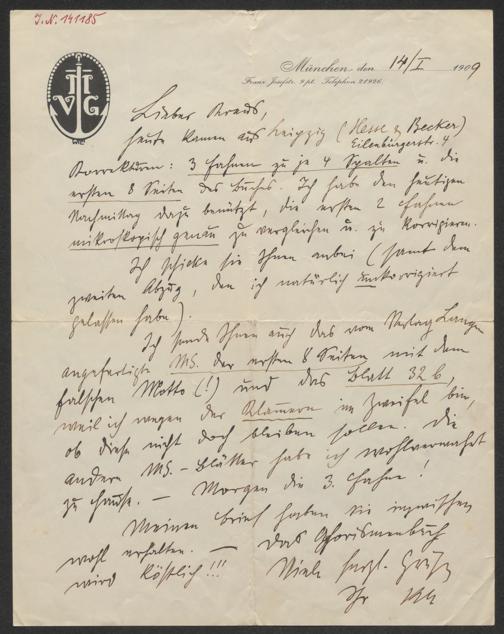 J.N. 141185
VHG
München, den 14/I 1909
Franz Josefstr. 9 pt. Telephon 21926.
Lieber Kraus,
heute kamen aus Leipzig (Hesse & Becker)
Eilenburgerstr. 4
Korrekturen: 3 Fahnen zu je 4 Spalten u. die
ersten 8 Seiten des Buches. Ich habe den heutigen
Nachmittag dazu benützt, die ersten 2 Fahnen
mikroskopisch genau zu vergleichen u. zu korrigieren.
Ich schicke sie Ihnen anbei (samt dem
zweiten Abzug, den ich natürlich unkorrigiert
gelassen habe).
Ich sende Ihnen auch das vom Verlag Langen
angefertigte MS. der ersten 8 Seiten mit dem
falschen Motto (!) und das Blatt 32 b,
weil ich wegen der Klammern im Zweifel bin,
ob diese nicht doch bleiben sollen. Die
andern MS.-Blätter habe ich wohlverwahrt
zu Hause. — Morgen die 3. Fahne!
Meinen Brief haben Sie inzwischen
wohl erhalten. — Das Aphorismenbuch
wird köstlich!!!
Viele herzl. Grüße
Ihr